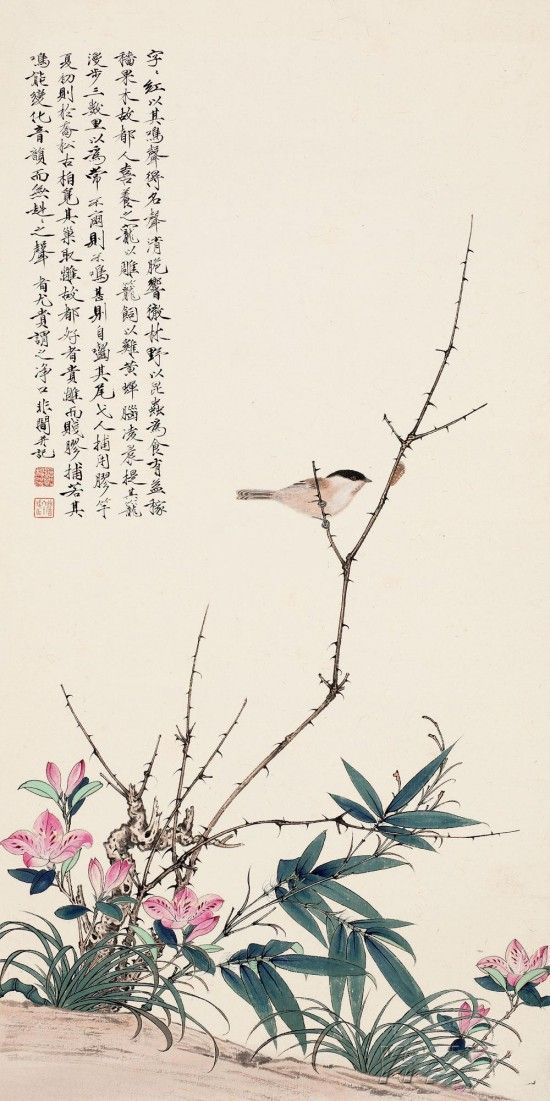 字〻紅以其鳴聲得名聲清脆響徹林野以昆蟲為食有益稼
穡果木故都人喜養之寵以雕籠飼以雞黃蟬腦凌晨提其籠
漫步三數里以為常不爾則不鳴甚則自嚙其尾弋人捕用膠竿
夏初則於喬松古柏覓其巢取雛故都好者貴雛而賤膠捕若其
鳴能變化音韻而無 之聲者尤貴謂之淨口非闇并記